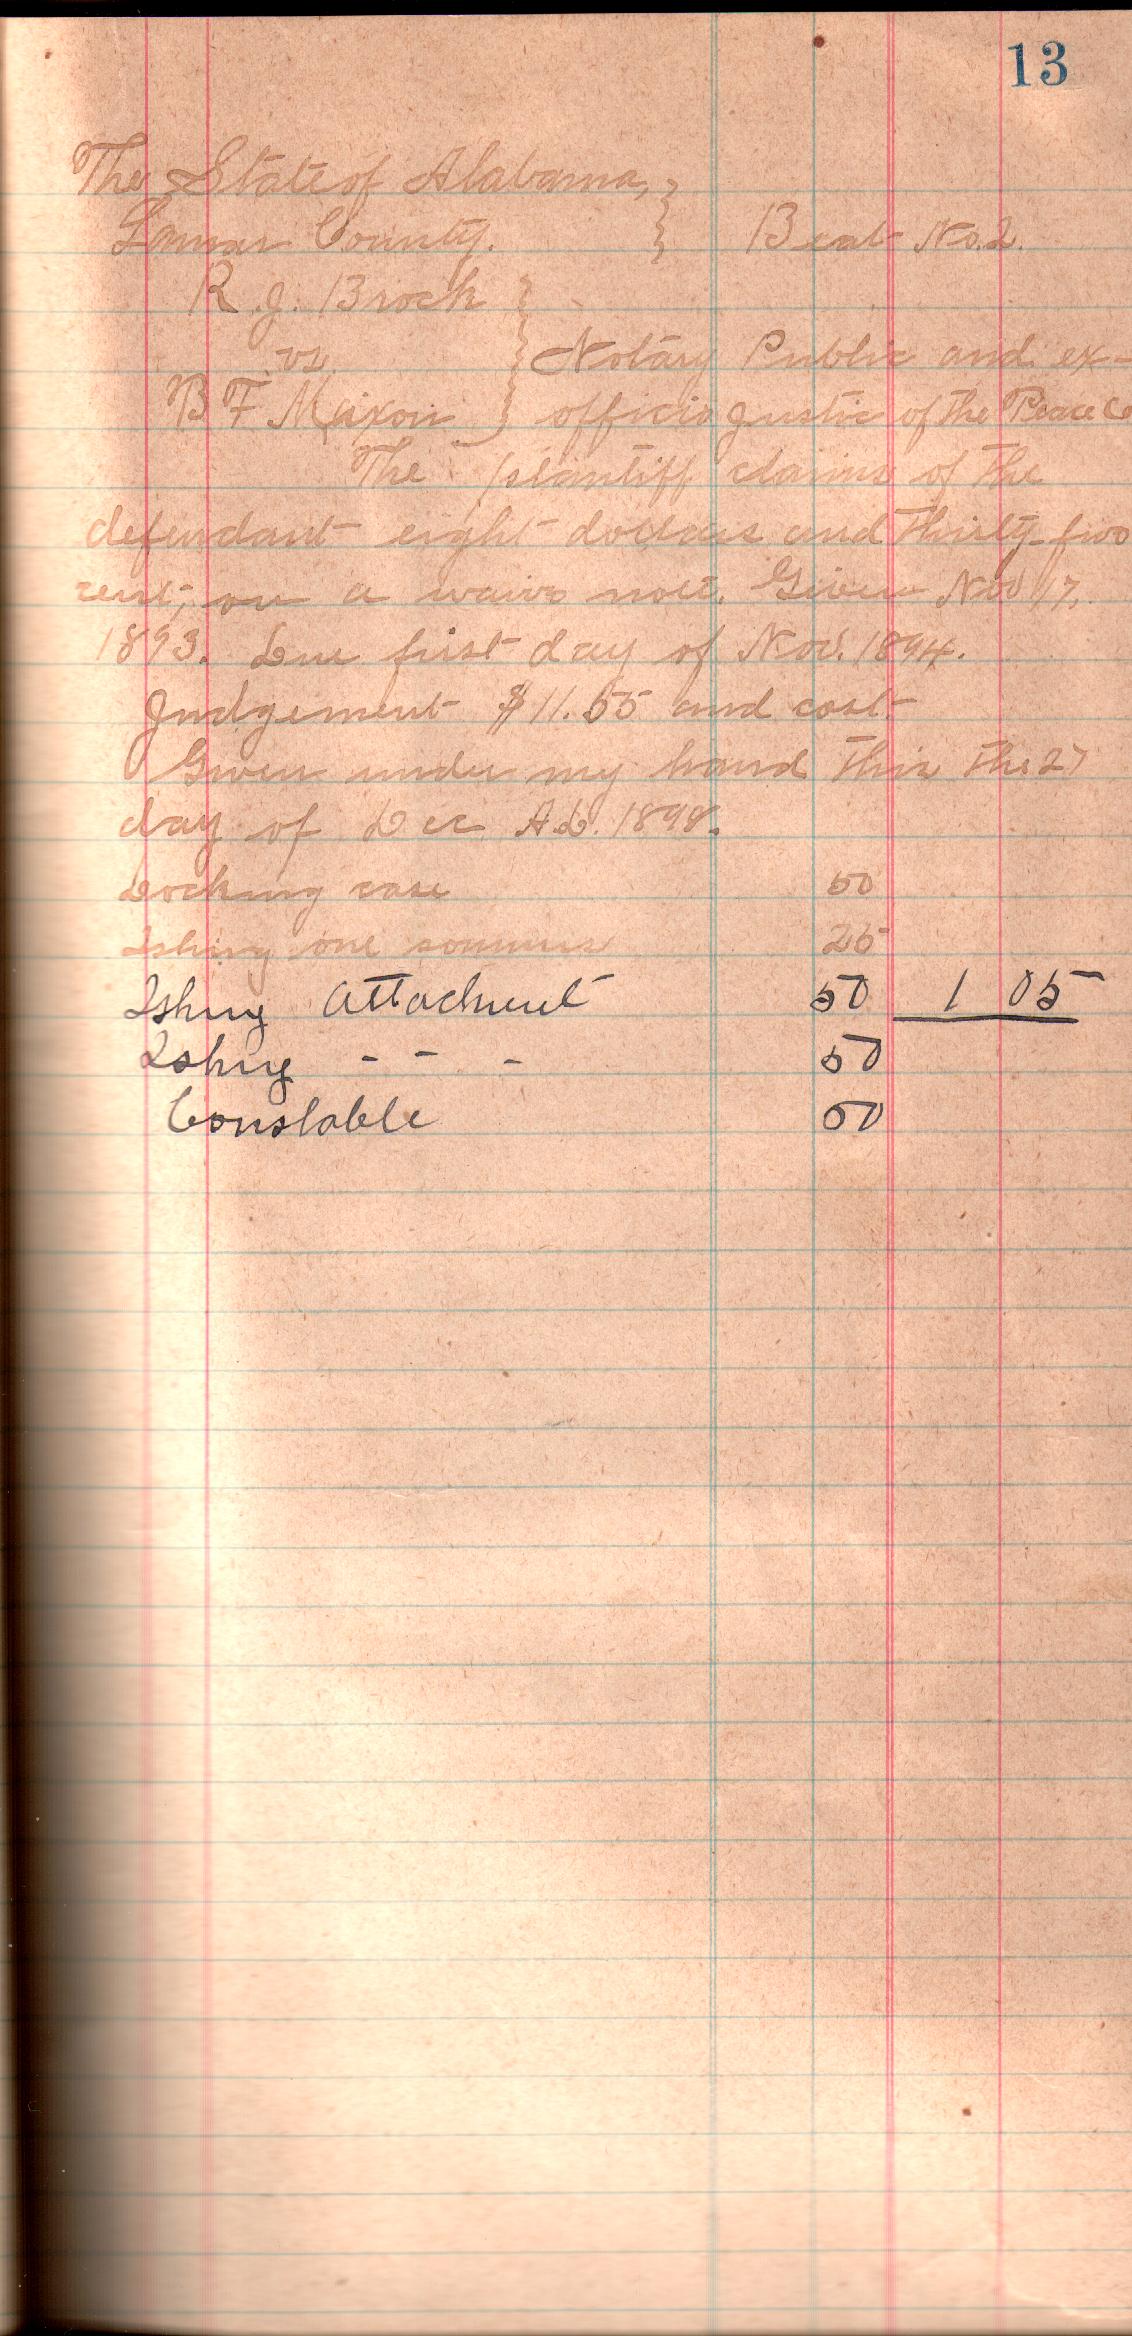 13
The State of Alabama,
Lamar County. Beat No. 2.
R. J. Brock
vs. Notary Public and ex-
B F Maxon officio Justic of the Peace
The plantiff claims of the
defendant eight dollars and thirty-two
cent, on a waivo note. Given Nov 17,
1893. Due first day of Nov. 1894.
Judgement $11.55 and cost.
Given under my hand this the 27
day of Dec A.D. 1898.
Docking case 50
Ishing one sommus 25
Ishing Attachment 50 1 05
Ishing - - - 50
Constable 50